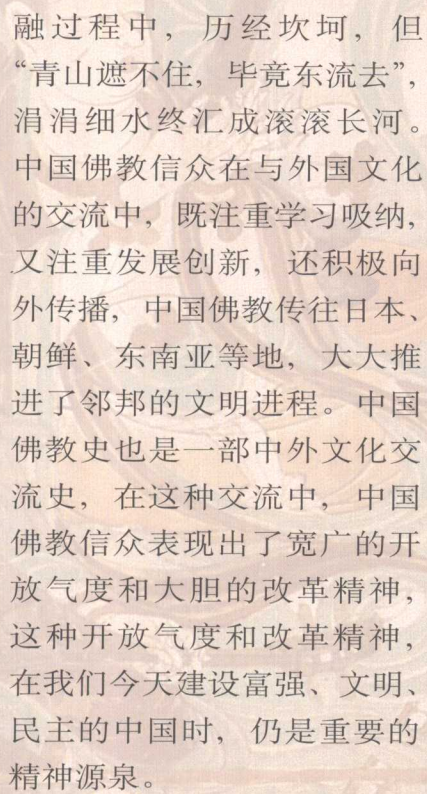 融过程中，历经坎坷，但
“青山遮不住，毕竟东流去”，
涓涓细水终汇成滚滚长河。
中国佛教信众在与外国文化
的交流中，既注重学习吸纳，
又注重发展创新，还积极向
外传播，中国佛教传往日本、
朝鲜、东南亚等地，大大推
进了邻邦的文明进程。中国
佛教史也是一部中外文化交
流史，在这种交流中，中国
佛教信众表现出了宽广的开
放气度和大胆的改革精神，
这种开放气度和改革精神，
在我们今天建设富强、文明、
民主的中国时，仍是重要的
精神源泉。